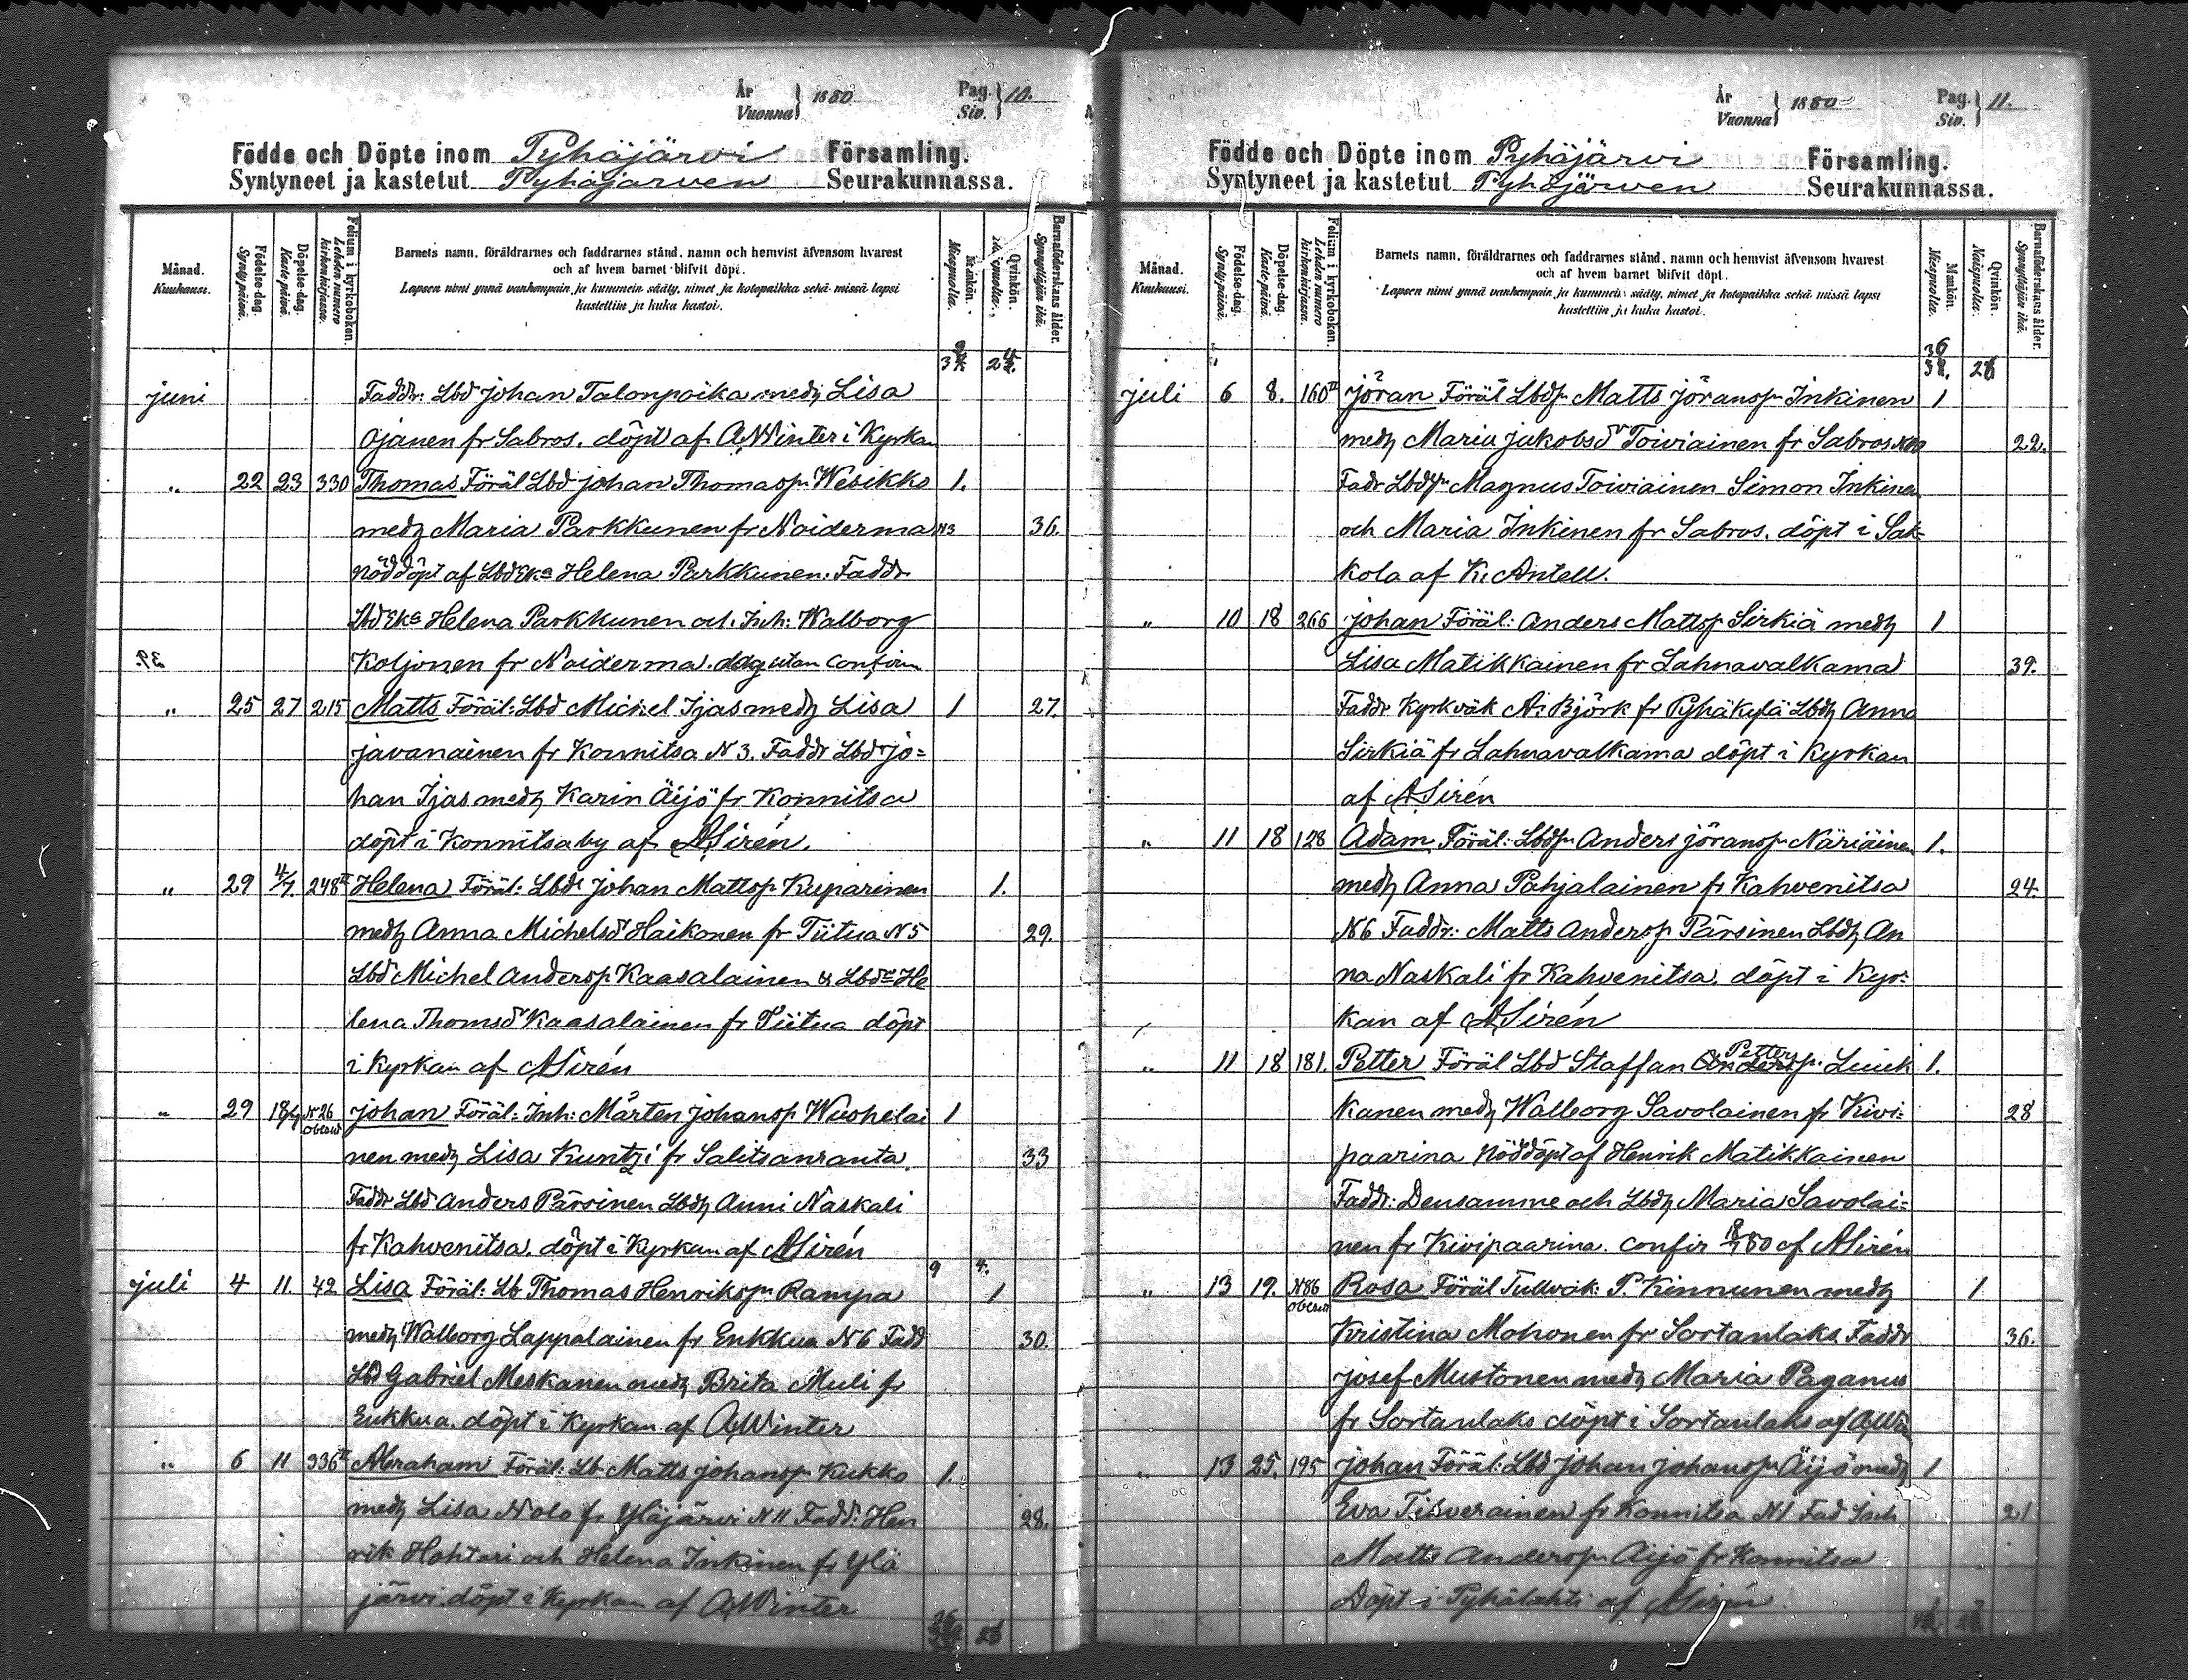 År Vuonna } 1880 Pag. Siv. } 10.
Födde och Döpte inom Pyhäjärvi Församling.
Syntyneet ja kastetut Pyhäjärven Seurakunnassa.
Månad. Kuukausi.
Födelse-dag. Syntypäivä.
Döpelse-dag. Kastepäivä.
Folium i kyrkoboken. Lehden numero kirkonkirjassa.
Barnets namn, föräldrarnes och faddrarnes stånd, namn och hemvist äfvensom hvarest
och af hvem barnet blifvit döpt.
Lapsen nimi ynnä vanhempain ja kummein sääty, nimet ja kotopaikka sekä missä lapsi
kastettiin ja kuka kastoi.
Mankön. Miespuolia.
Qvinkön.
Barnaföderskans ålder. Synnyttäjän ikä.
juni Faddr: Lbd johan Talonpoika medh Lisa
Ojanen fr Sabros. döpt af A Winter i Kyrkan
" 22 23 330 Thomas Föräl Lbd johan Thomasp. Wesikko 1.
medh Maria Parkkunen fr Noiderma N3 36.
nöddöpt af Lbd Eka Helena Parkkunen. Faddr
Lbd Eka Helena Parkkunen och Inh: Walborg
P.E. Koljonen fr Noiderma. ddg utan confirm
" 25 27 215 Matts Föräl: Lbd Michel Ijas medh Lisa 1 27.
javanainen fr Konnitsa N 3. Faddr Lbdr jo=
han Ijas medh Karin Äijö fr Konnitsa
döpt i Konnitsaby af A Sirén.
" 29 4/7. 248 II Helena Föräl: Lbdr johan Mattsp Kuparinen 1.
medh Anna Michelsdr Haikonen fr Tiitua N 5 29.
Lbd Michel Andersp. Kaasalainen & Lbda He
lena Thomsdr Kaasalainen fr Tiitua döpt
i Kyrkan af A Sirén
" 29 18/7 N 26 johan Föräl: Inh: Mårten johansp Wushelai 1
nen medh Lisa Kuntzi fr Salitsanranta. 33
Faddr Lbd Anders Pärsinen Lbdh Anni Naskali
fr Kahvenitsa. döpt i Kyrkan af A Sirén
9 4.
juli 4 11 42 Lisa Föräl: Lb Thomas Henriksp. Rampa 1
medh Walborg Lappalainen fr Enkkua N 6 Fadd 30.
Lbd Gabriel Meskanen medh Brita Muli fr
Enkkua. döpt i Kyrkan af A Winter
" 6 11 336 II Abraham Föräl: Lb Matts johansp. Kukko 1.
medh Lisa Nolo fr Yläjärvi N 11 Fadd: Hen 28.
rik Hohtari och Helena Inkinen fr Ylä
järvi. döpt i Kyrkan af A Winter
År Vuonna } 1880 Pag. Siv. } 11.
Födde och Döpte inom Pyhäjärvi Församling.
Syntyneet ja kastetut Pyhäjärven Seurakunnassa.
Månad. Kuukausi.
Födelse-dag. Syntypäivä.
Döpelse-dag. Kastepäivä.
Folium i kyrkoboken. Lehden numero kirkonkirjassa.
Barnets namn, föräldrarnes och faddrarnes stånd, namn och hemvist äfvensom hvarest
och af hvem barnet blifvit döpt.
Lapsen nimi ynnä vanhempain ja kummein sääty, nimet ja kotopaikka sekä missä lapsi
kastettiin ja kuka kastoi.
Mankön. Miespuolia.
Qvinkön. Naispuolia.
Barnaföderskans ålder. Synnyttäjän ikä.
juli 6 8. 160 II jöran Föräl Lbdp. Matts jöransp. Inkinen 1
medh Maria jakobsdr Toiviainen fr Sabros 22.
Fadr Lbdp. Magnus Toiviainen Simon Inkinen
och Maria Inkinen fr Sabros. döpt i Sak=
kola af K. Antell.
" 10 18 266 johan Föräl: Anders Mattsp Sirkiä medh 1
Lisa Matikkainen fr Lahnavalkama 39.
Faddr Kyrkväk A. Björk fr Pyhäkylä Lbdh Anna
Sirkiä fr Lahnavalkama döpt i Kyrkan
af A Sirén
" 11 18 128 Adam Föräl: Lbdp. Anders jöransp. Näriäinen 1.
medh Anna Pahjalainen fr Kahvenitsa 24.
N 6 Faddr: Matts Andersp Pärsinen Lbdh An
na Naskali fr Kahvenitsa. döpt i Kyr=
kan af A Sirén
" 11 18 181. Petter Föräl Lbd Staffan Andersp. Petters Luuk 1.
kanen medh Walborg Savolainen fr Kivi= 28
paarina nöddöpt af Henrik Matikkainen
Faddr: Densamme och Lbdh Maria Savolai=
nen fr Kivipaarina. confir 18/7 80 af A Sirén
" 13 19. N 86 Rosa Föräl Tullvak: P. Kinnunen medh 1
Kristina Mohonen fr Sortanlaks Faddr 36.
josef Mustonen medh Maria Paganus
fr Sortanlaks döpt i Sortanlaks af A Win
" 13 25. 195 johan Föräl: Lbd johan johansp. Äijö medh 1
Eva fr Konnitsa N 1 Fad 21
Matts Andersp. Äijö fr Konnitsa
Döpt i Pyhälahti af A Sirén.